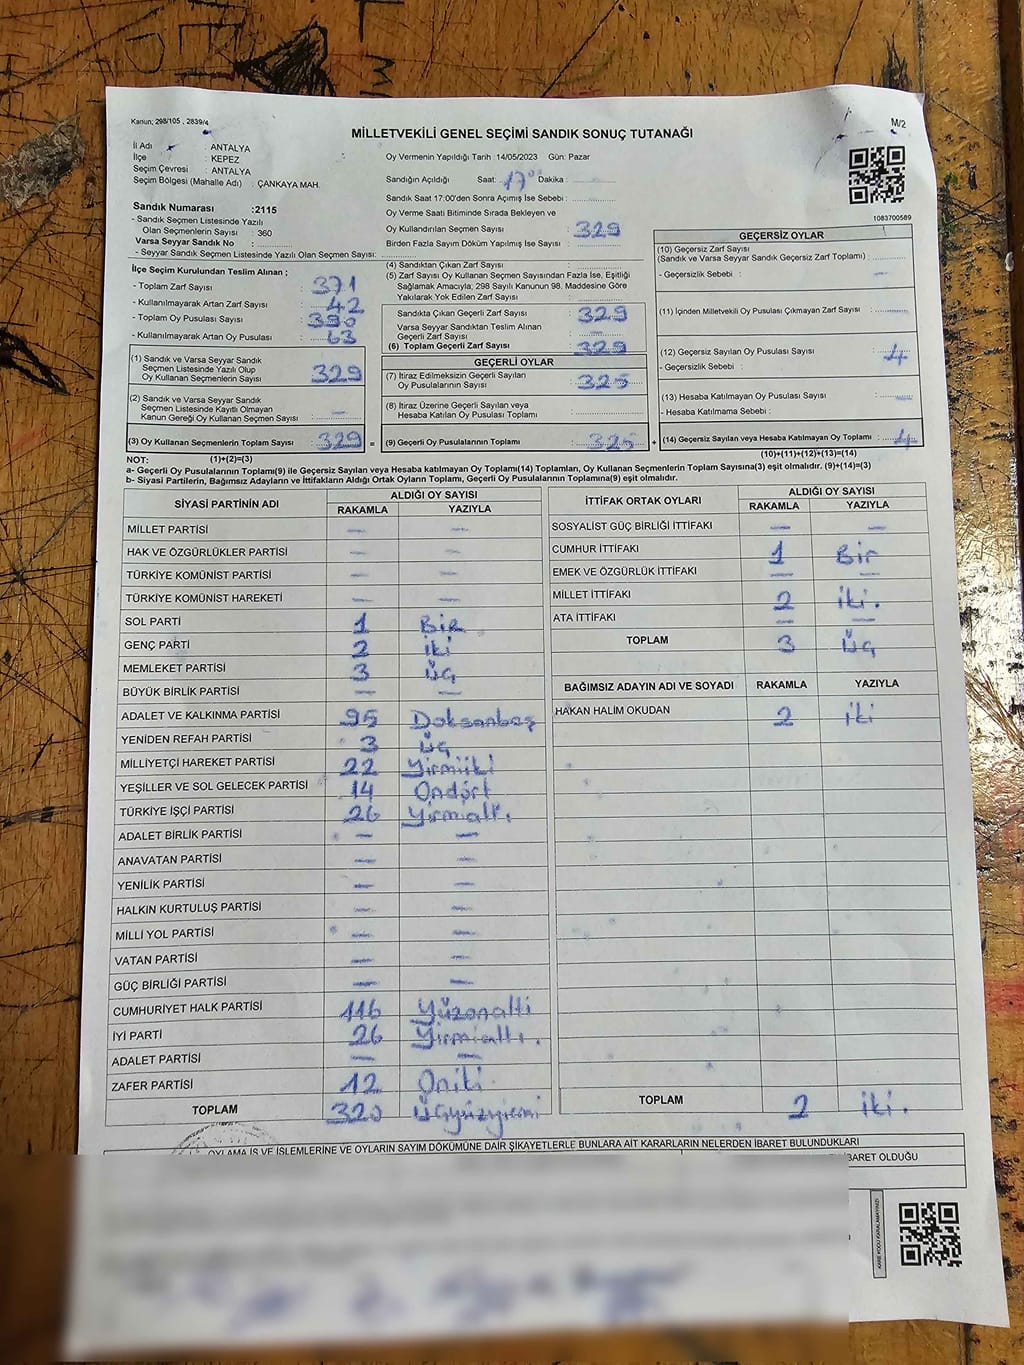 Kanun; 298/105 , 2839/4
M/2
MİLLETVEKİLİ GENEL SEÇİMİ SANDIK SONUÇ TUTANAĞI
İl Adı : ANTALYA
İlçe : KEPEZ
Seçim Çevresi : ANTALYA
Seçim Bölgesi (Mahalle Adı) : ÇANKAYA MAH.
Sandık Numarası :2115
- Sandık Seçmen Listesinde Yazılı
Olan Seçmenlerin Sayısı : 360
Varsa Seyyar Sandık No :
- Seyyar Sandık Listesinde Yazılı Olan Seçmen Sayısı:
Oy Vermenin Yapıldığı Tarih :14/05/2023 Gün: Pazar
Sandığın Açıldığı Saat: 17⁰⁰ Dakika :
Sandık Saat 17:00'den Sonra Açımış İse Sebebi :
Oy Verme Saati Bitiminde Sırada Bekleyen ve
Oy Kullandırılan Seçmen Sayısı : 329
Birden Fazla Sayım Döküm Yapılmış İse Sayısı :
1083700589
İlçe Seçim Kurulundan Teslim Alınan ;
- Toplam Zarf Sayısı : 371
- Kullanılmayarak Artan Zarf Sayısı : 42
- Toplam Oy Pusulası Sayısı : 390
- Kullanılmayarak Artan Oy Pusulası : 63
(1) Sandık ve Varsa Seyyar Sandık
Seçmen Listesinde Yazılı Olup
Oy Kullanan Seçmenlerin Sayısı : 329
(2) Sandık ve Varsa Seyyar Sandık
Seçmen Listesinde Kayıtlı Olmayan
Kanun Gereği Oy Kullanan Seçmen Sayısı : —
(3) Oy Kullanan Seçmenlerin Toplam Sayısı : 329 =
(4) Sandıktan Çıkan Zarf Sayısı :
(5) Zarf Sayısı Oy Kullanan Seçmen Sayısından Fazla İse, Eşitliği
Sağlamak Amacıyla; 298 Sayılı Kanunun 98. Maddesine Göre
Yakılarak Yok Edilen Zarf Sayısı :
Sandıkta Çıkan Geçerli Zarf Sayısı : 329
Varsa Seyyar Sandıktan Teslim Alınan
Geçerli Zarf Sayısı : —
(6) Toplam Geçerli Zarf Sayısı : 329
GEÇERLİ OYLAR
(7) İtiraz Edilmeksizin Geçerli Sayılan
Oy Pusulalarının Sayısı : 325
(8) İtiraz Üzerine Geçerli Sayılan veya
Hesaba Katılan Oy Pusulası Toplamı :
(9) Geçerli Oy Pusulalarının Toplamı : 325 +
GEÇERSİZ OYLAR
(10) Geçersiz Zarf Sayısı
(Sandık ve Varsa Seyyar Sandık Geçersiz Zarf Toplamı) :
- Geçersizlik Sebebi : —
(11) İçinden Milletvekili Oy Pusulası Çıkmayan Zarf Sayısı :
(12) Geçersiz Sayılan Oy Pusulası Sayısı : 4
- Geçersizlik Sebebi :
(13) Hesaba Katılmayan Oy Pusulası Sayısı : —
- Hesaba Katılmama Sebebi :
(14) Geçersiz Sayılan veya Hesaba Katılmayan Oy Toplamı : 4
NOT: (1)+(2)=(3) (10)+(11)+(12)+(13)=(14)
a- Geçerli Oy Pusulalarının Toplamı(9) ile Geçersiz Sayılan veya Hesaba katılmayan Oy Toplamı(14) Toplamları, Oy Kullanan Seçmenlerin Toplam Sayısına(3) eşit olmalıdır. (9)+(14)=(3)
b- Siyasi Partilerin, Bağımsız Adayların ve İttifakların Aldığı Ortak Oyların Toplamı, Geçerli Oy Pusulalarının Toplamına(9) eşit olmalıdır.
SİYASİ PARTİNİN ADI ALDIĞI OY SAYISI
RAKAMLA YAZIYLA
MİLLET PARTİSİ — —
HAK VE ÖZGÜRLÜKLER PARTİSİ — —
TÜRKİYE KOMÜNİST PARTİSİ — —
TÜRKİYE KOMÜNİST HAREKETİ — —
SOL PARTİ 1 Bir
GENÇ PARTİ 2 iki
MEMLEKET PARTİSİ 3 Üç
BÜYÜK BİRLİK PARTİSİ — —
ADALET VE KALKINMA PARTİSİ 95 Doksanbeş
YENİDEN REFAH PARTİSİ 3 Üç
MİLLİYETÇİ HAREKET PARTİSİ 22 Yirmiiki
YEŞİLLER VE SOL GELECEK PARTİSİ 14 Ondört
TÜRKİYE İŞÇİ PARTİSİ 26 Yirmialtı
ADALET BİRLİK PARTİSİ — —
ANAVATAN PARTİSİ — —
YENİLİK PARTİSİ — —
HALKIN KURTULUŞ PARTİSİ — —
MİLLİ YOL PARTİSİ — —
VATAN PARTİSİ — —
GÜÇ BİRLİĞİ PARTİSİ — —
CUMHURİYET HALK PARTİSİ 116 Yüzonaltı
İYİ PARTİ 26 Yirmialtı.
ADALET PARTİSİ — —
ZAFER PARTİSİ 12 Oniki
TOPLAM 320 Üçyüzyirmi
İTTİFAK ORTAK OYLARI ALDIĞI OY SAYISI
RAKAMLA YAZIYLA
SOSYALİST GÜÇ BİRLİĞİ İTTİFAKI — —
CUMHUR İTTİFAKI 1 Bir
EMEK VE ÖZGÜRLÜK İTTİFAKI — —
MİLLET İTTİFAKI 2 iki.
ATA İTTİFAKI — —
TOPLAM 3 Üç
BAĞIMSIZ ADAYIN ADI VE SOYADI RAKAMLA YAZIYLA
HAKAN HALİM OKUDAN 2 iki
TOPLAM 2 iki.
OYLAMA İŞ VE İŞLEMLERİNE VE OYLARIN SAYIM DÖKÜMÜNE DAİR ŞİKAYETLERLE BUNLARA AİT KARARLARIN NELERDEN İBARET BULUNDUKLARI
İBARET OLDUĞU
KARE KODU KARALAMAYINIZ!